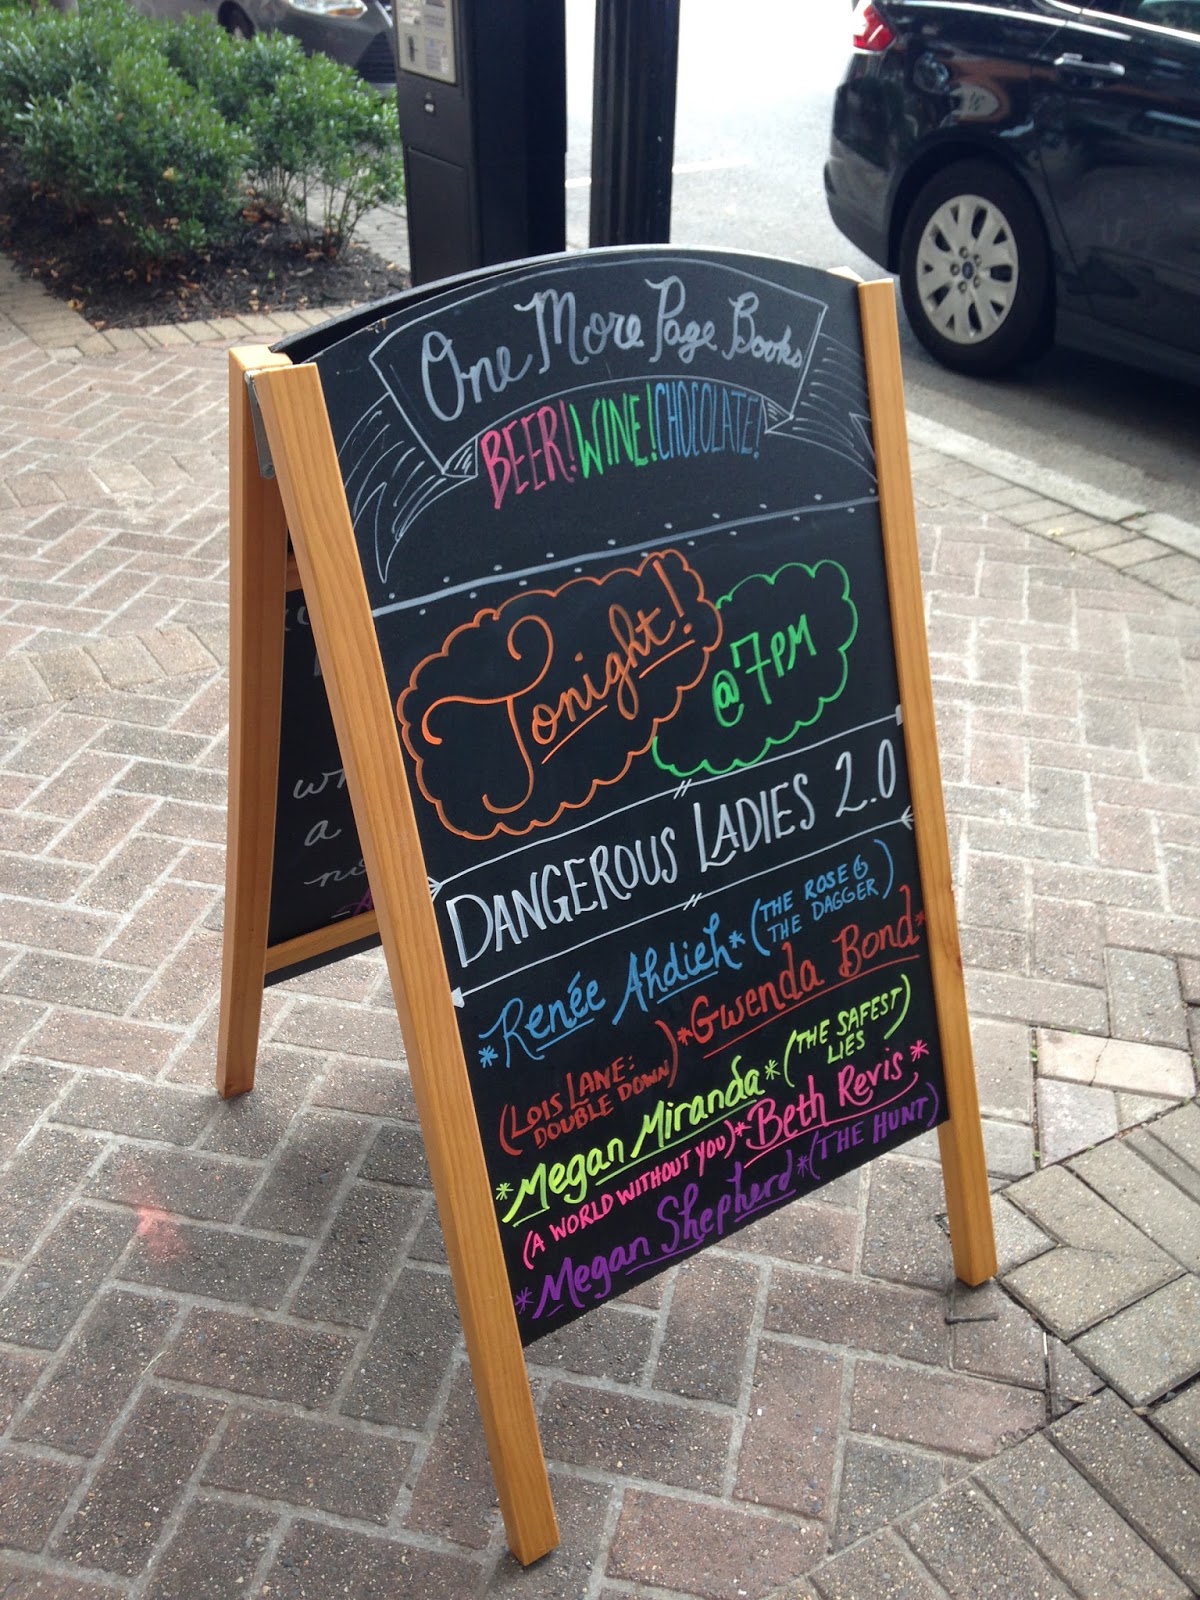 One More Page Books
BEER! WINE! CHOCOLATE!
Tonight!
@ 7PM
DANGEROUS LADIES 2.0
*Renée Ahdieh* (THE ROSE &
THE DAGGER)
*Gwenda Bond*
(LOIS LANE:
DOUBLE DOWN)
*Megan Miranda* (THE SAFEST
LIES)
*Beth Revis*
(A WORLD WITHOUT YOU)
*Megan Shepherd* (THE HUNT)
a